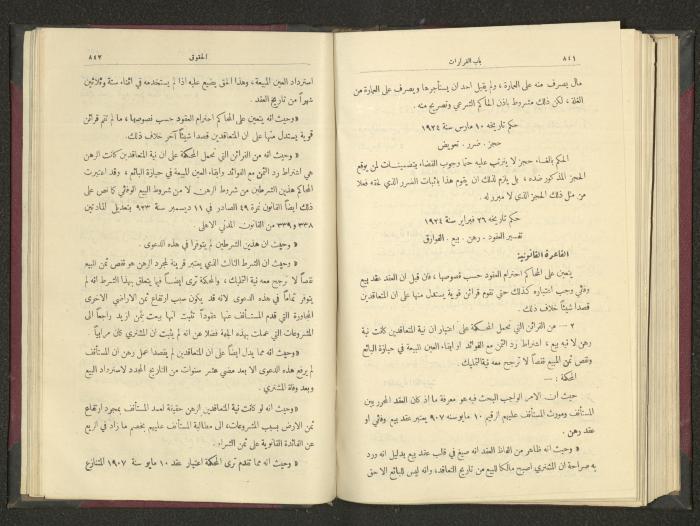 ٨٤٦
باب القرارات
مال يصرف منه على العمارة، ولم يقبل احد ان يستأجرها ويصرف على العمارة من
الغلة، لكن ذلك مشروط باذن الحاكم الشرعي وتصريح منه.
حكم تاريخه ١٠ مارس سنة ١٩٢٤
حجز. ضرر. تعويض
الحكم بالغاء حجز لا يترتب عليه حتما وجوب القضاء بتضمينات لمن يوقع
الحجز المذكور ضده، بل يلزم لذلك ان يقوم هذا باثبات الضرر الذي لحقه فعلا
من مثل ذلك الحجز الذي لا مبرر له.
حكم تاريخه ٢٦ فبراير سنة ١٩٢٤
تفسير العقود. رهن. بيع. الفوارق
القاعدة القانونية
يتعين على المحاكم احترام العقود حسب نصوصها، فان قبل ان العقد عقد بيع
وفائي وجب اعتباره كذلك حتى تقوم قرائن قوية يستدل منها على ان المتعاقدين
قصدا شيئًا خلاف ذلك.
٢ — من القرائن التي تحمل المحكمة على اعتبار ان نية المتعاقدين كانت نية
رهن لا نية بيع، اشتراط رد الثمن مع الفوائد او ابقاء العين المبيعة في حيازة البائع
ونقص ثمن المبيع نقصًا لا ترجح معه نية التمليك.
المحكمة: —
حيث ان الامر الواجب البحث فيه هو معرفة ما اذا كان العقد المحرر بين
المستأنف ومورث المستأنف عليهم الرقيم ١٠ مايو سنه ٩٠٧ يعتبر عقد بيع وفائي او
عقد رهن.
« وحيث انه ظاهر من الفاظ العقد انه صيغ في قالب عقد بيع بدليل انه ورد
به صراحة ان المشتري اصبح مالكا للمبيع من تاريخ التعاقد، وانه ليس للبائع الا حق
الحقوق
٨٤٧
استرداد العين المبيعة، وهذا الحق يضيع عليه اذا لم يستخدمه في اثناء ستة وثلاثين
شهراً من تاريخ العقد.
« وحيث انه يتعين على المحاكم احترام العقود حسب نصوصها، ما لم تقم قرائن
قوية يستدل منها على ان المتعاقدين قصدا شيئًا آخر خلاف ذلك.
« وحيث انه من القرائن التي تحمل المحكمة على ان نية المتعاقدين كانت الرهن
هي اشتراط رد الثمن مع الفوائد وابقاء العين المبيعة في حيازة البائع، وقد اعتبرت
المحاكم هذين الشرطين من شروط الرهن لا من شروط البيع الوفائي كما نص على
ذلك ايضًا القانون نمرة ٤٩ الصادر في ١١ ديسمبر سنة ٩٢٣ بتعديل المادتين
٣٣٨ و ٣٣٩ من القانون المدني الاهلي.
« وحيث ان هذين الشرطين لم يتوفرا في هذه الدعوى.
« وحيث ان الشرط الثالث الذي يعتبر قرينة لمجرد الرهن هو نقص ثمن المبيع
نقصًا لا ترجح معه نية التمليك، والمحكة ترى ايضًا فيما يتعلق بهذا الشرط انه لم
يتوفر تمامًا في هذه الدعوى لانه قد يكون سبب ارتفاع ثمن الاراضي الاخرى
المجاورة التي قدم المستأنف عنها عقوداً تثبت انها بيعت بثمن ازيد راجعاً الى
المشروعات التي عملت بهذه الجهة فضلا عن انه لم يثبت ان المشتري كان مرابياً.
« وحيث انه مما يدل ايضًا على ان المتعاقدين لم يقصدا عمل رهن ان المستأنف
لم يرفع هذه الدعوى الا بعد مضي عشر سنوات من التاريخ المحدد لاسترداد البيع
وبعد وفاة المشتري.
« وحيث انه لو كانت نية المتعاقدين الرهن حقيقة لعمد المستأنف بمجرد ارتفاع
ثمن الارض بسبب المشروعات، الى مطالبة المستأنف عليهم بخصم ما زاد في الريع
عن الفائدة القانونية على ثمن الشراء.
« وحيث انه مما تقدم ترى المحكمة اعتبار عقد ١٠ مايو سنة ١٩٠٧ المتنازع